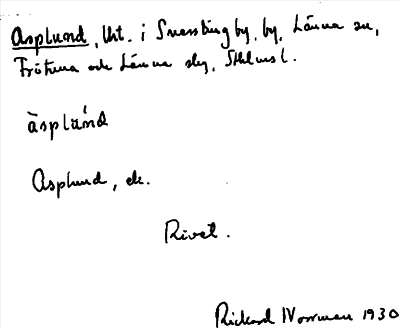 Asplund, lht. i Smessingby, by, Länna sn,
Frötuna och Länna sky, Sthlms l.
àsplún̄d
Asplund, ek.
Rivet.
Rickard Worrman 1930